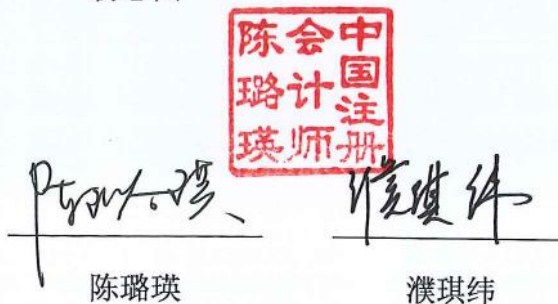 中国注册
会计师
陈璐瑛
陈璐瑛
濮琪纬
陈璐瑛 濮琪纬